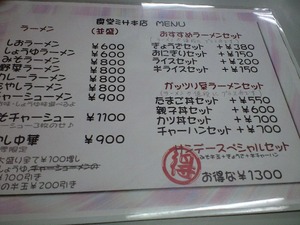 MENU
ラーメン
(並盛)
しおラーメン ¥600
しょうゆラーメン ¥600
みそラーメン ¥700
野菜ラーメン ¥800
カレーラーメン ¥800
もやしラーメン ¥800
チャーシューメン ¥900
¥1100
¥900
¥100増し
¥100引き
¥200引き
おすすめラーメンセット
ぎょうざセット +¥380
おにぎりセット +¥150
ライスセット +¥150
半ライスセット +¥100
ガッツリ系ラーメンセット
たまご丼セット +¥550
親子丼セット +¥600
カツ丼セット +¥700
チャーハンセット +¥700
得
サンデースペシャルセット
お得な¥1300